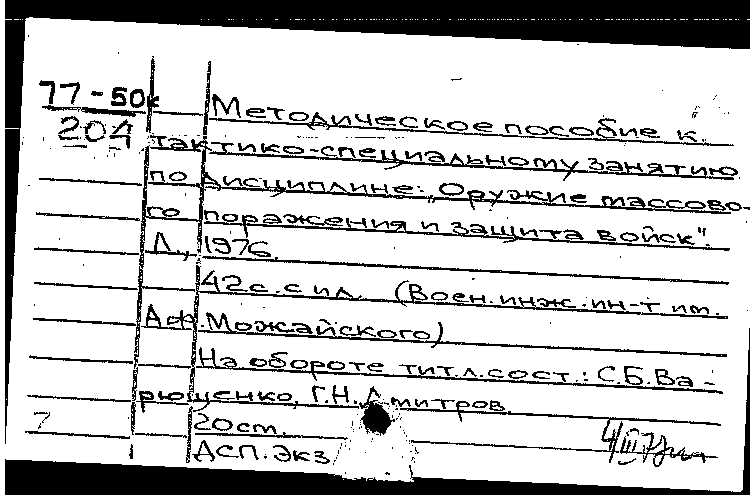 77-50к
204
Методическое пособие к
тактико-специальному занятию
по дисциплине: „Оружие массово-
го поражения и защита войск".
Л., 1976.
42с. с ил. (Воен. инж. ин-т им.
А.Ф. Можайского)
На обороте тит. л. сост.: С.Б. Ва-
рющенко, Г.Н. Дмитров.
20 см.
ДСП. Экз
7
4/III 77